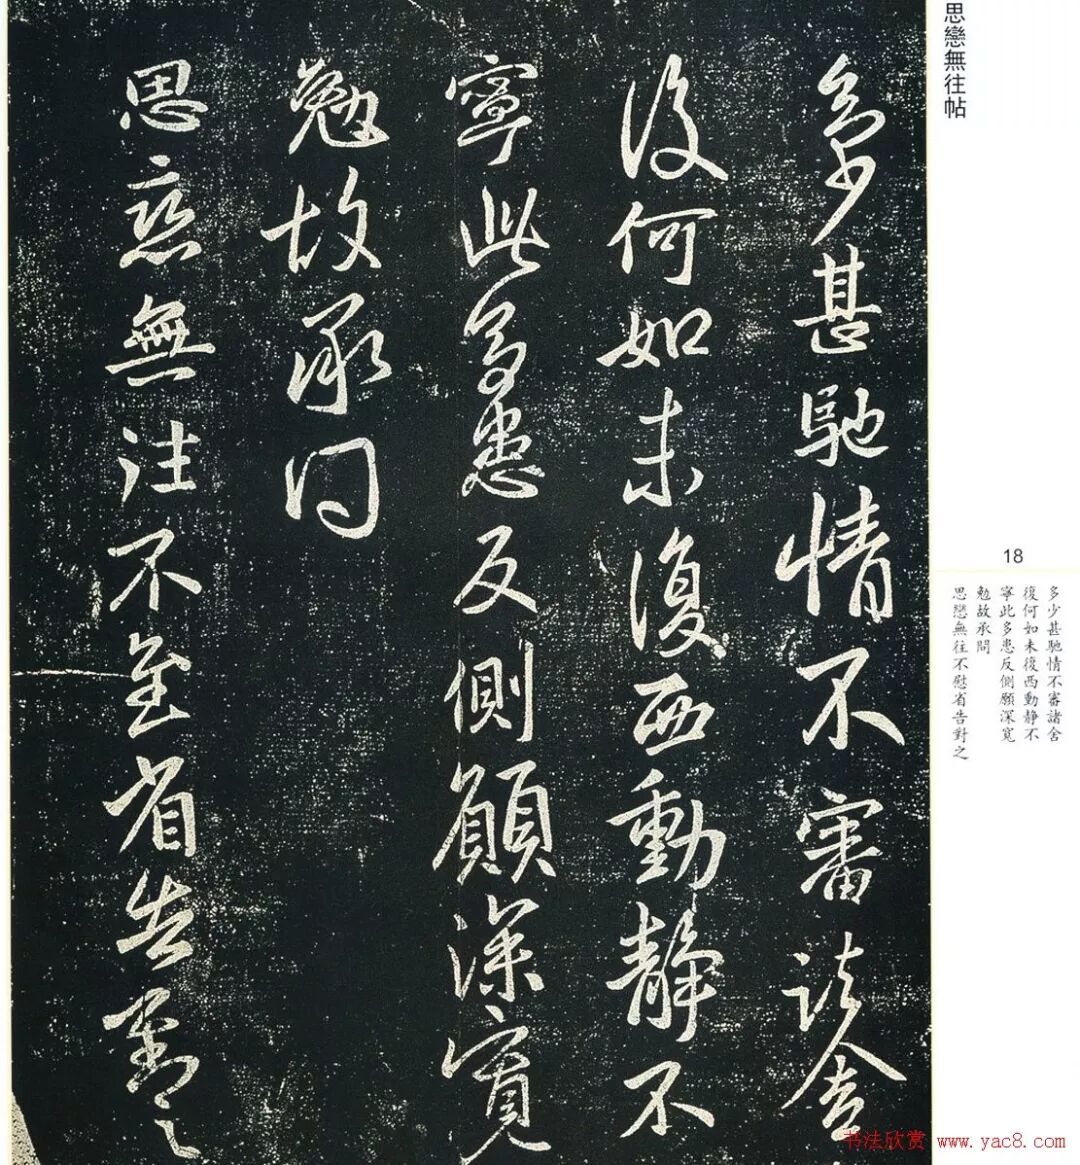 思戀無往帖
多少甚馳情不審諸舍
復何如未復西動靜不
寧此多患反側願深寬
勉故承問
思戀無往不慰省告對之
18
多少甚馳情不審諸舍
復何如未復西動静不
寧此多患反側願深寬
勉故承問
思戀無往不慰省告對之
书法欣赏 www.yac8.com